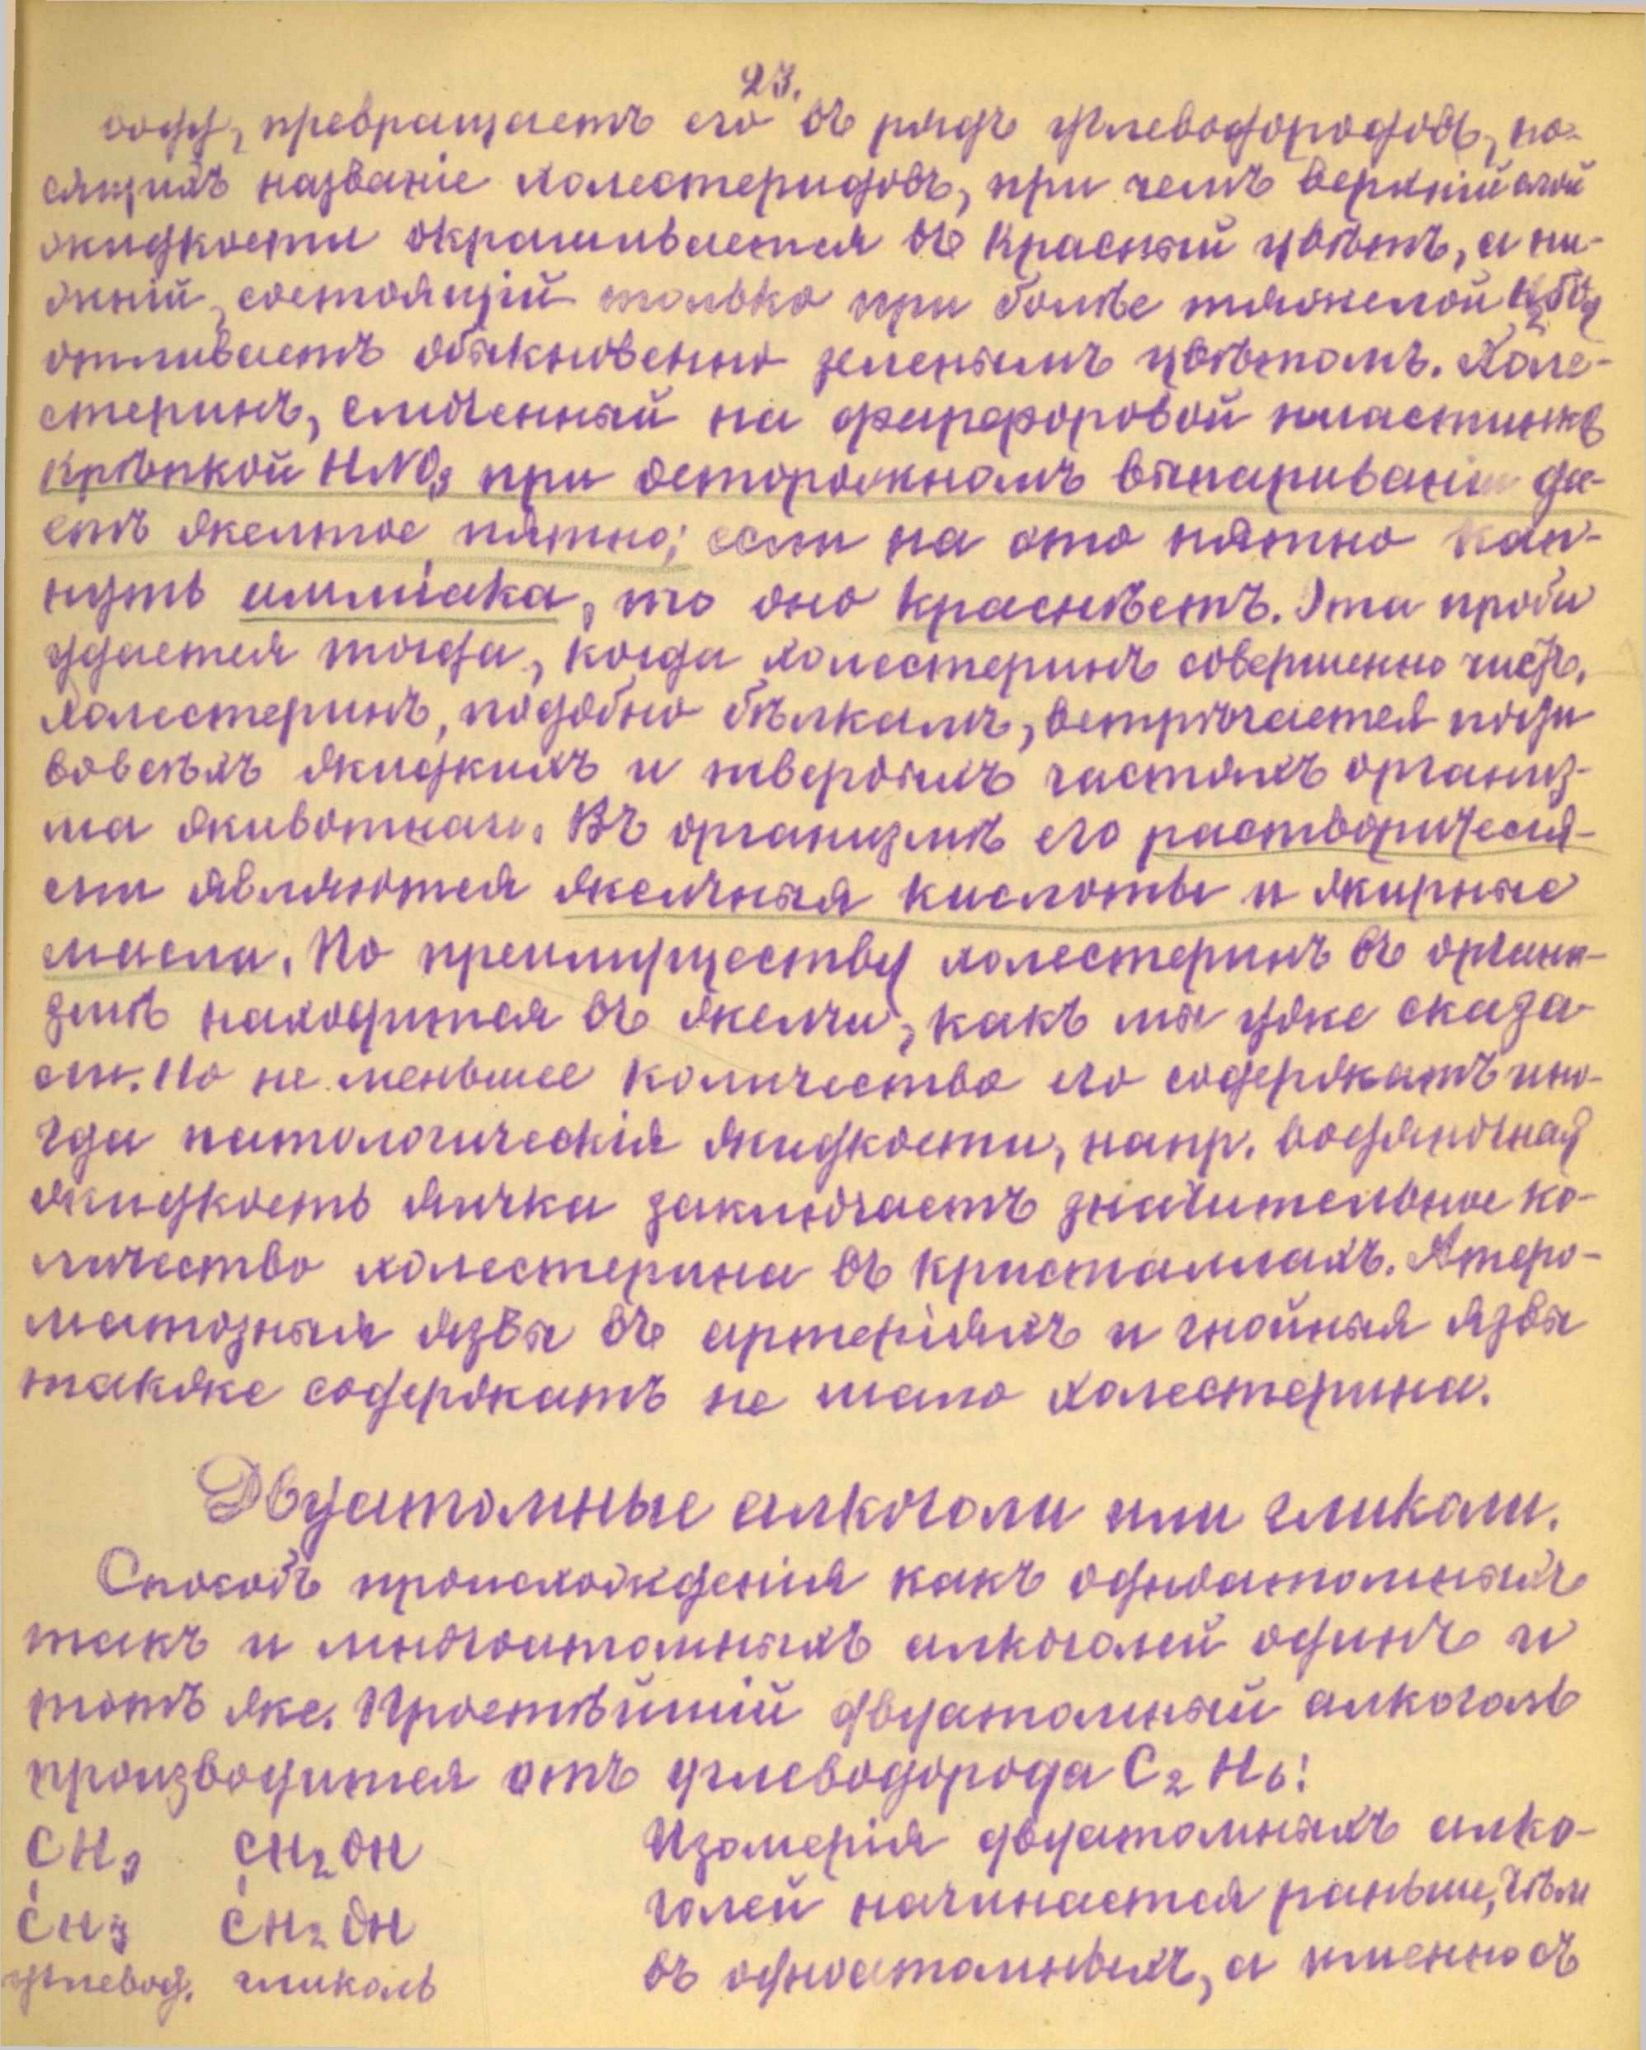 23.
воду, превращаетъ его въ рядъ углеводородовъ, но-
сящихъ названіе холестеридовъ, при чемъ верхній слой
жидкости окрашивается въ красный цвѣтъ, а ни-
жній, состоящій только при болѣе тяжелой H2SO4
отливаетъ обыкновенно зеленымъ цвѣтомъ. Холе-
стеринъ, смоченный на фарфоровой пластинкѣ
крѣпкой HNO3 при осторожномъ выпариваніи да-
етъ желтое пятно; если на это пятно кап-
нуть амміака, то оно краснѣетъ. Эта проба
удается тогда, когда холестеринъ совершенно чистъ.
Холестеринъ, подобно бѣлкамъ, встрѣчается почти
вовсѣхъ жидкихъ и твердыхъ частяхъ организ-
ма животнаго. Въ организмѣ его растворителя-
ми являются желчныя кислоты и жирные
масла. По преимуществу холестеринъ въ орган-
измѣ находится въ желчи, какъ мы уже сказа-
ли. Но не меньшее количество его содержатъ ино-
гда патологическія жидкости, напр. водяночная
жидкость яичка заключаетъ значительное ко-
личество холестерина въ кристаллахъ. Атеро-
матозныя язвы въ артеріяхъ и гнойныя язвы
также содержатъ не мало холестерина.
Двуатомные алкоголи или гликоли.
Способъ происхожденія какъ одноатомныхъ
такъ и многоатомныхъ алкоголей одинъ и
тотъ же. Простѣйшій двуатомный алкоголь
производится отъ углеводорода C2H6:
CH3 CH2OH
CH3 CH2OH
углевод. гликоль
Изомерія двуатомныхъ алко-
голей начинается раньше, чѣмъ
въ одноатомныхъ, а именно съ